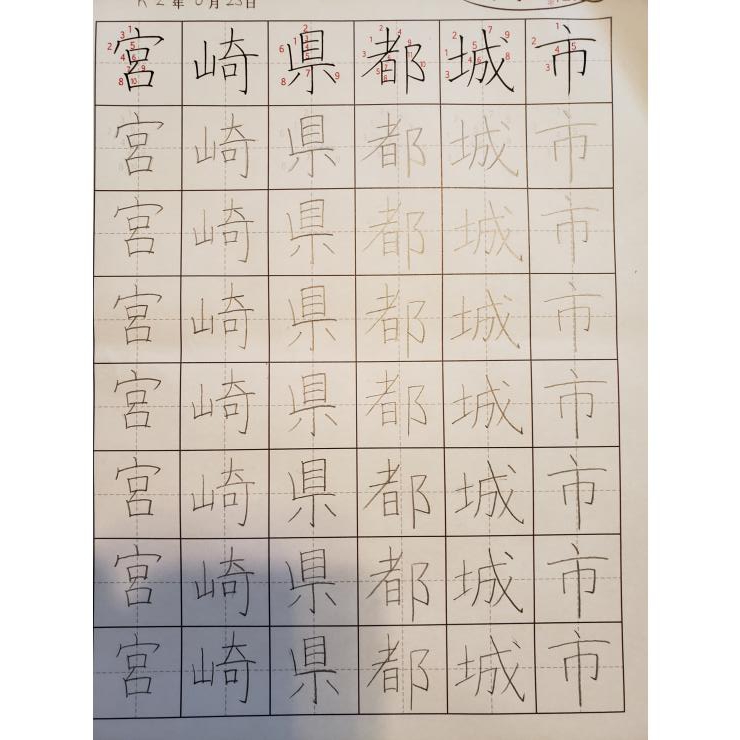 R2年 月23日
宮崎県都城市
宮崎県都城市
宮崎県都城市
宮崎県都城市
宮崎県都城市
宮崎県都城市
宮崎県都城市
宮崎県都城市